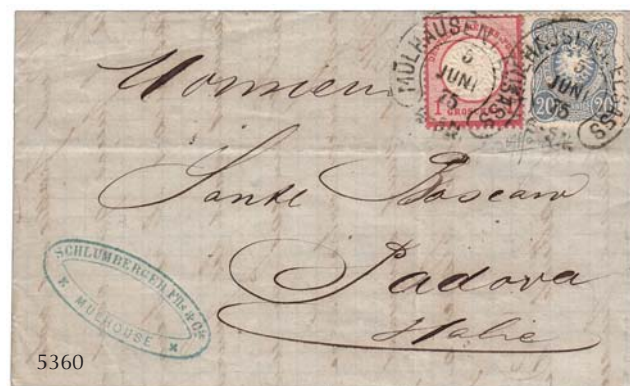 MÜLHAUSEN i. ELSASS
5
JUNI
75
1 GROSCHEN
MÜLHAUSEN i. ELSASS
5
JUNI
75
20 20
Monsieur
Sante Boscaro
Padova
Italie
SCHLUMBERGER FILS & Cie
MULHOUSE
5360